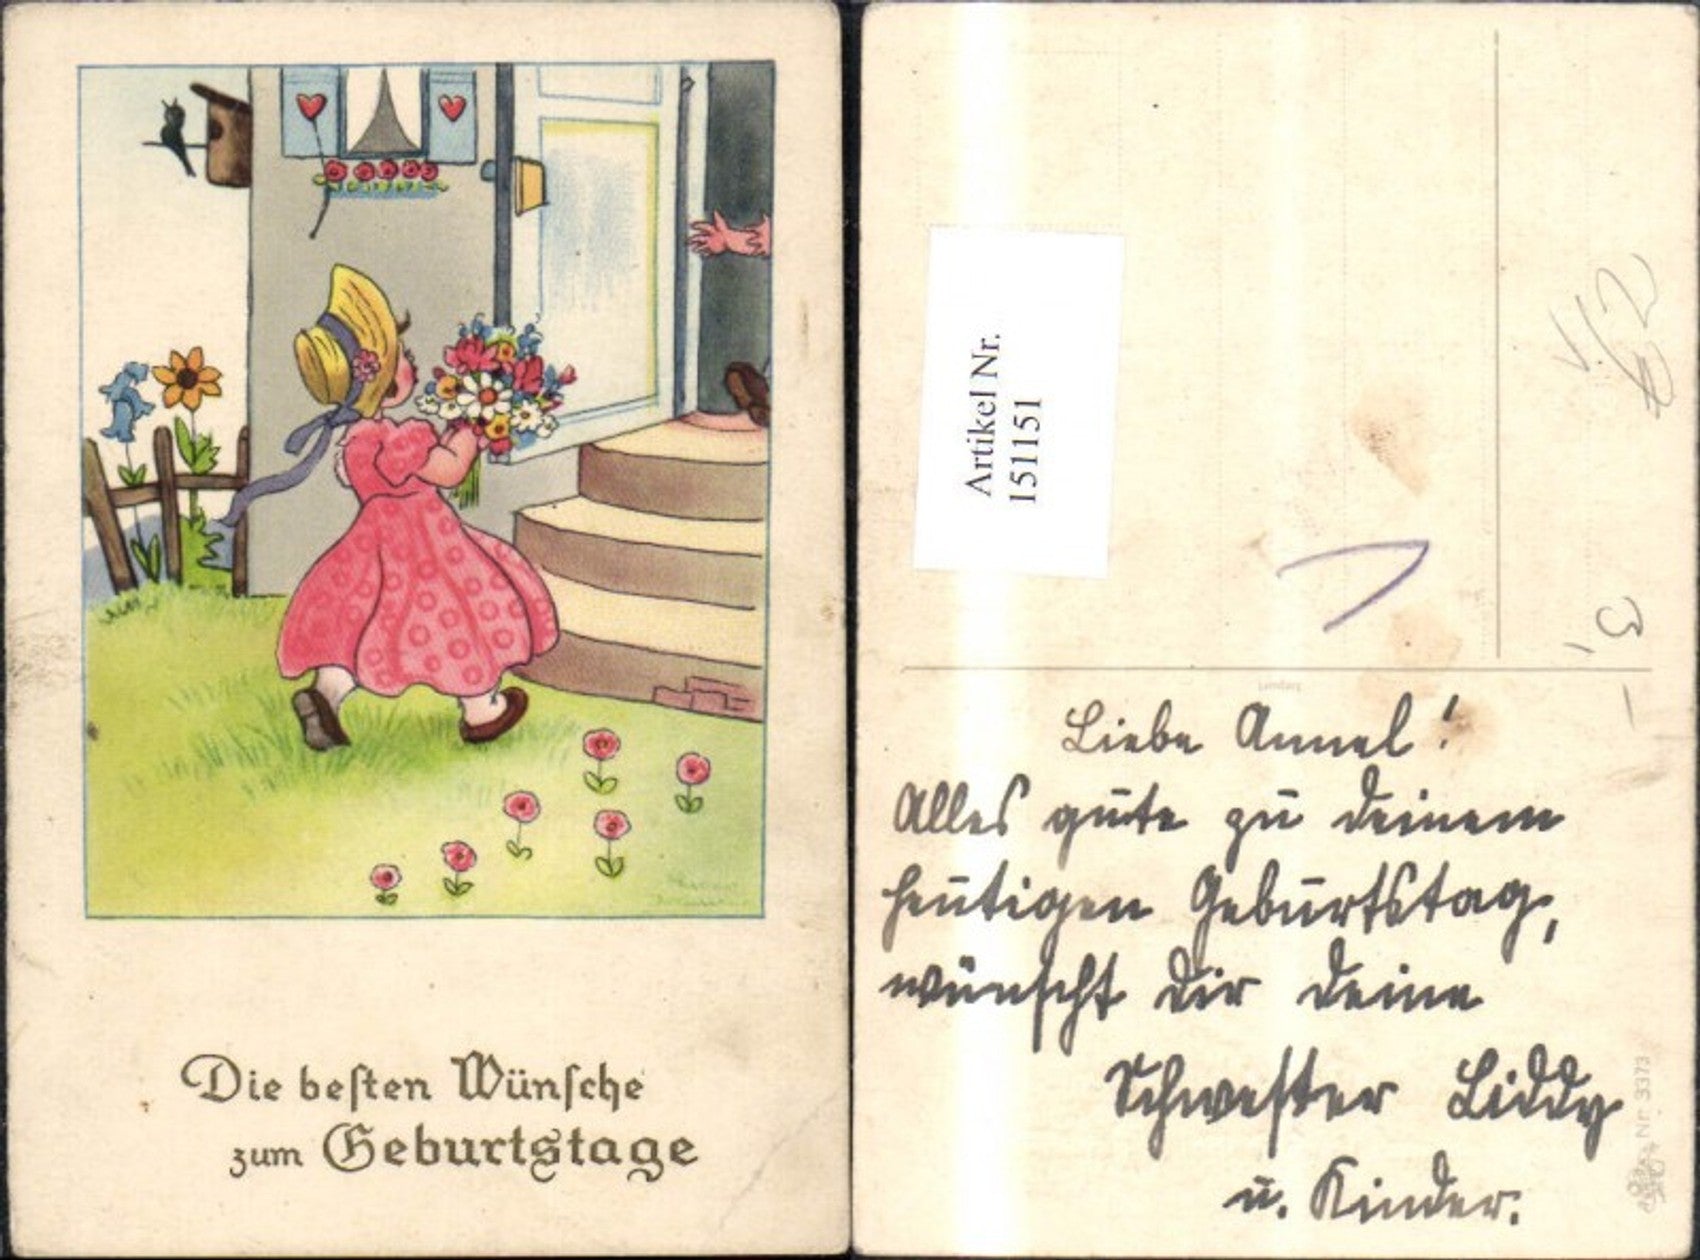 Die besten Wünsche
zum Geburtstage
Artikel Nr.
151151
Liebe Annel!
Alles gute zu deinem
heutigen Geburtstag,
wünscht dir deine
Schwester Liddy
u. Kinder.
Nr. 3373